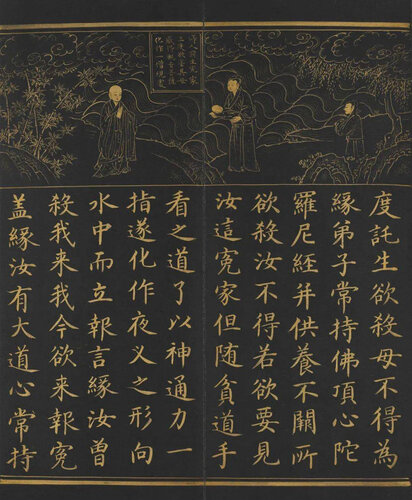 化作一僧現
度託生欲殺母不得為
緣弟子常持佛頂心陀
羅尼經并供養不闕所
欲殺汝不得若欲要見
汝這寃家但随貧道手
看之道了以神通力一
指遂化作夜义之形向
水中而立報言緣汝曾
殺我来我今欲来報寃
盖緣汝有大道心常持